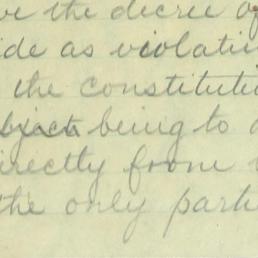 ve the decree of
ide as violati
the constituti
bject being to a
irectly from
the only parti